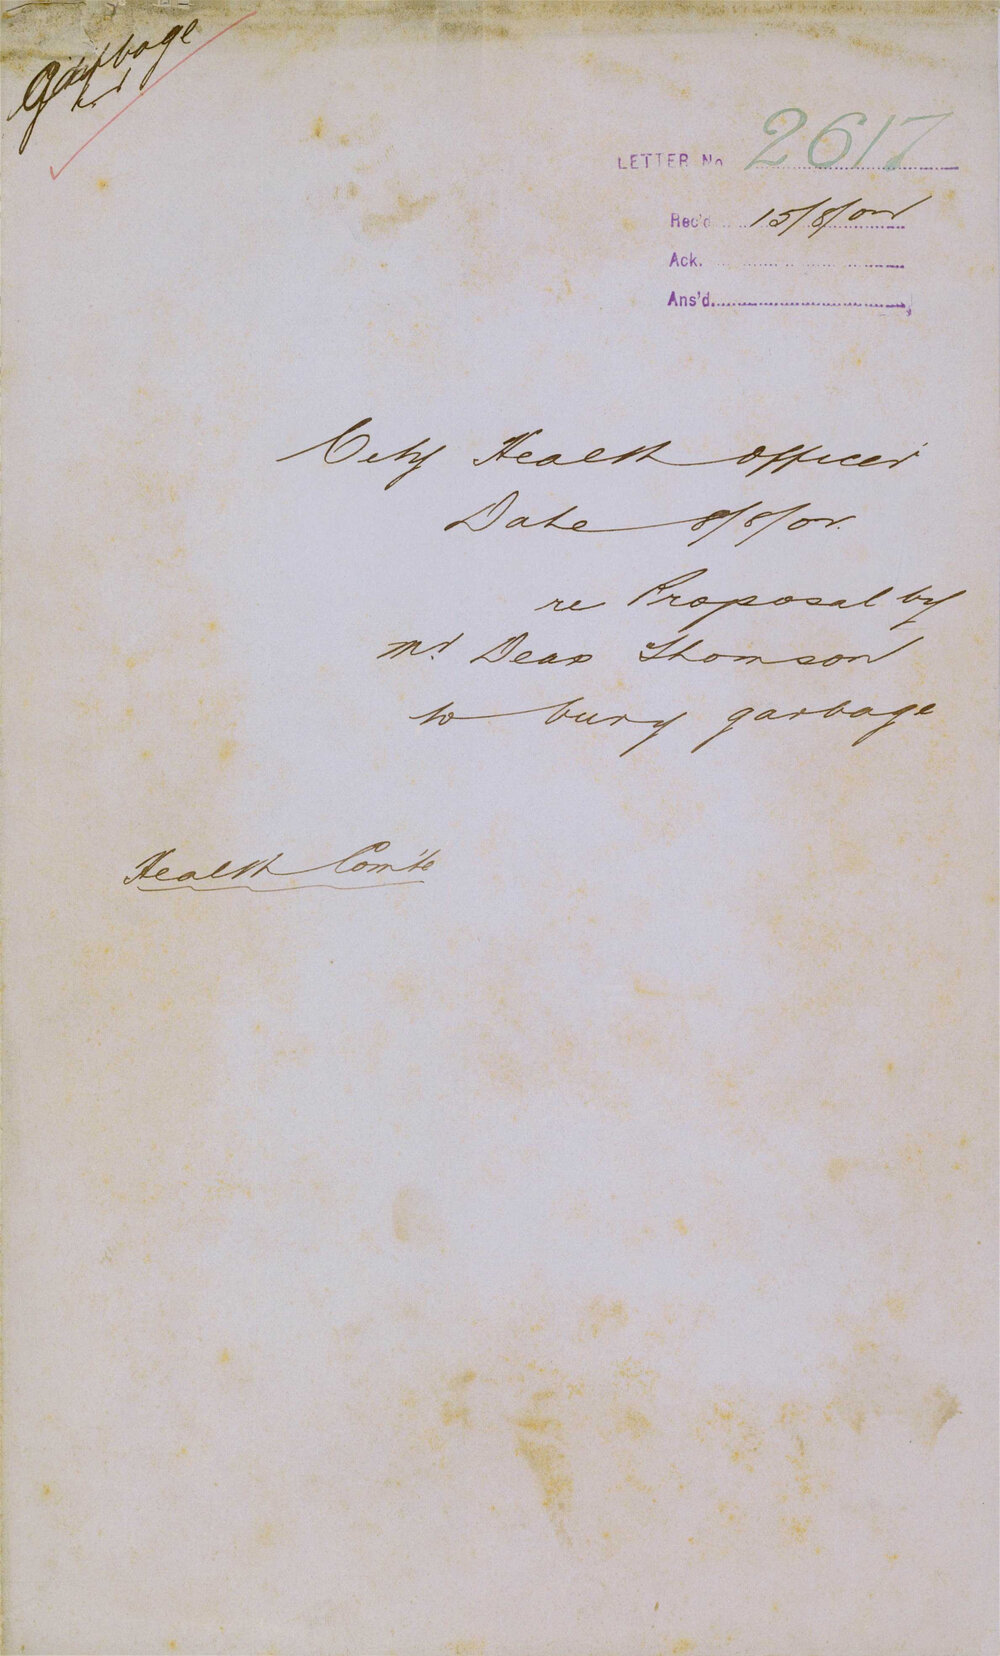 Garbage
LETTER No 2617
Rec'd 15/8/02
Ack.
Ans'd
City Health Officer
Date 8/8/02
re Proposal by
Mr Deas Thomson
to bury garbage
Health Com'te